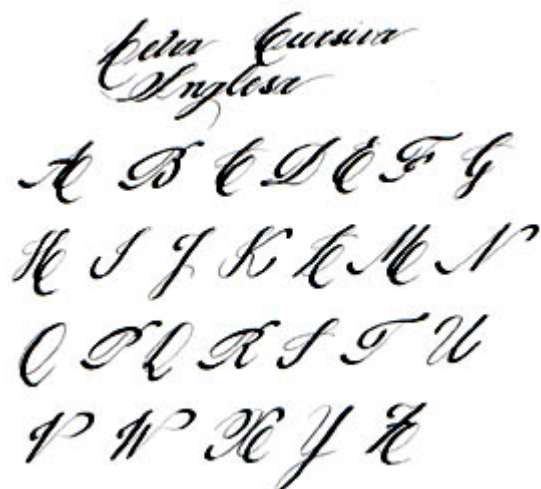 Letra Cursiva
Inglesa
A B C D E F G
H I J K L M N
O P Q R S T U
V W X Y Z